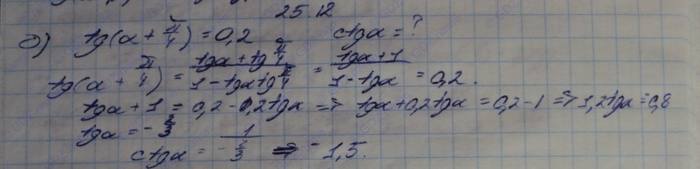 25.12
б) tg(α + π/4) = 0,2   ctgα = ?
tg(α + π/4) = (tgα + tg π/4)/(1 - tgα tg π/4) = (tgα + 1)/(1 - tgα) = 0,2.
tgα + 1 = 0,2 - 0,2tgα => tgα + 0,2tgα = 0,2 - 1 => 1,2tgα = 0,8
tgα = - 2/3
ctgα = - 1/(2/3) => - 1,5.